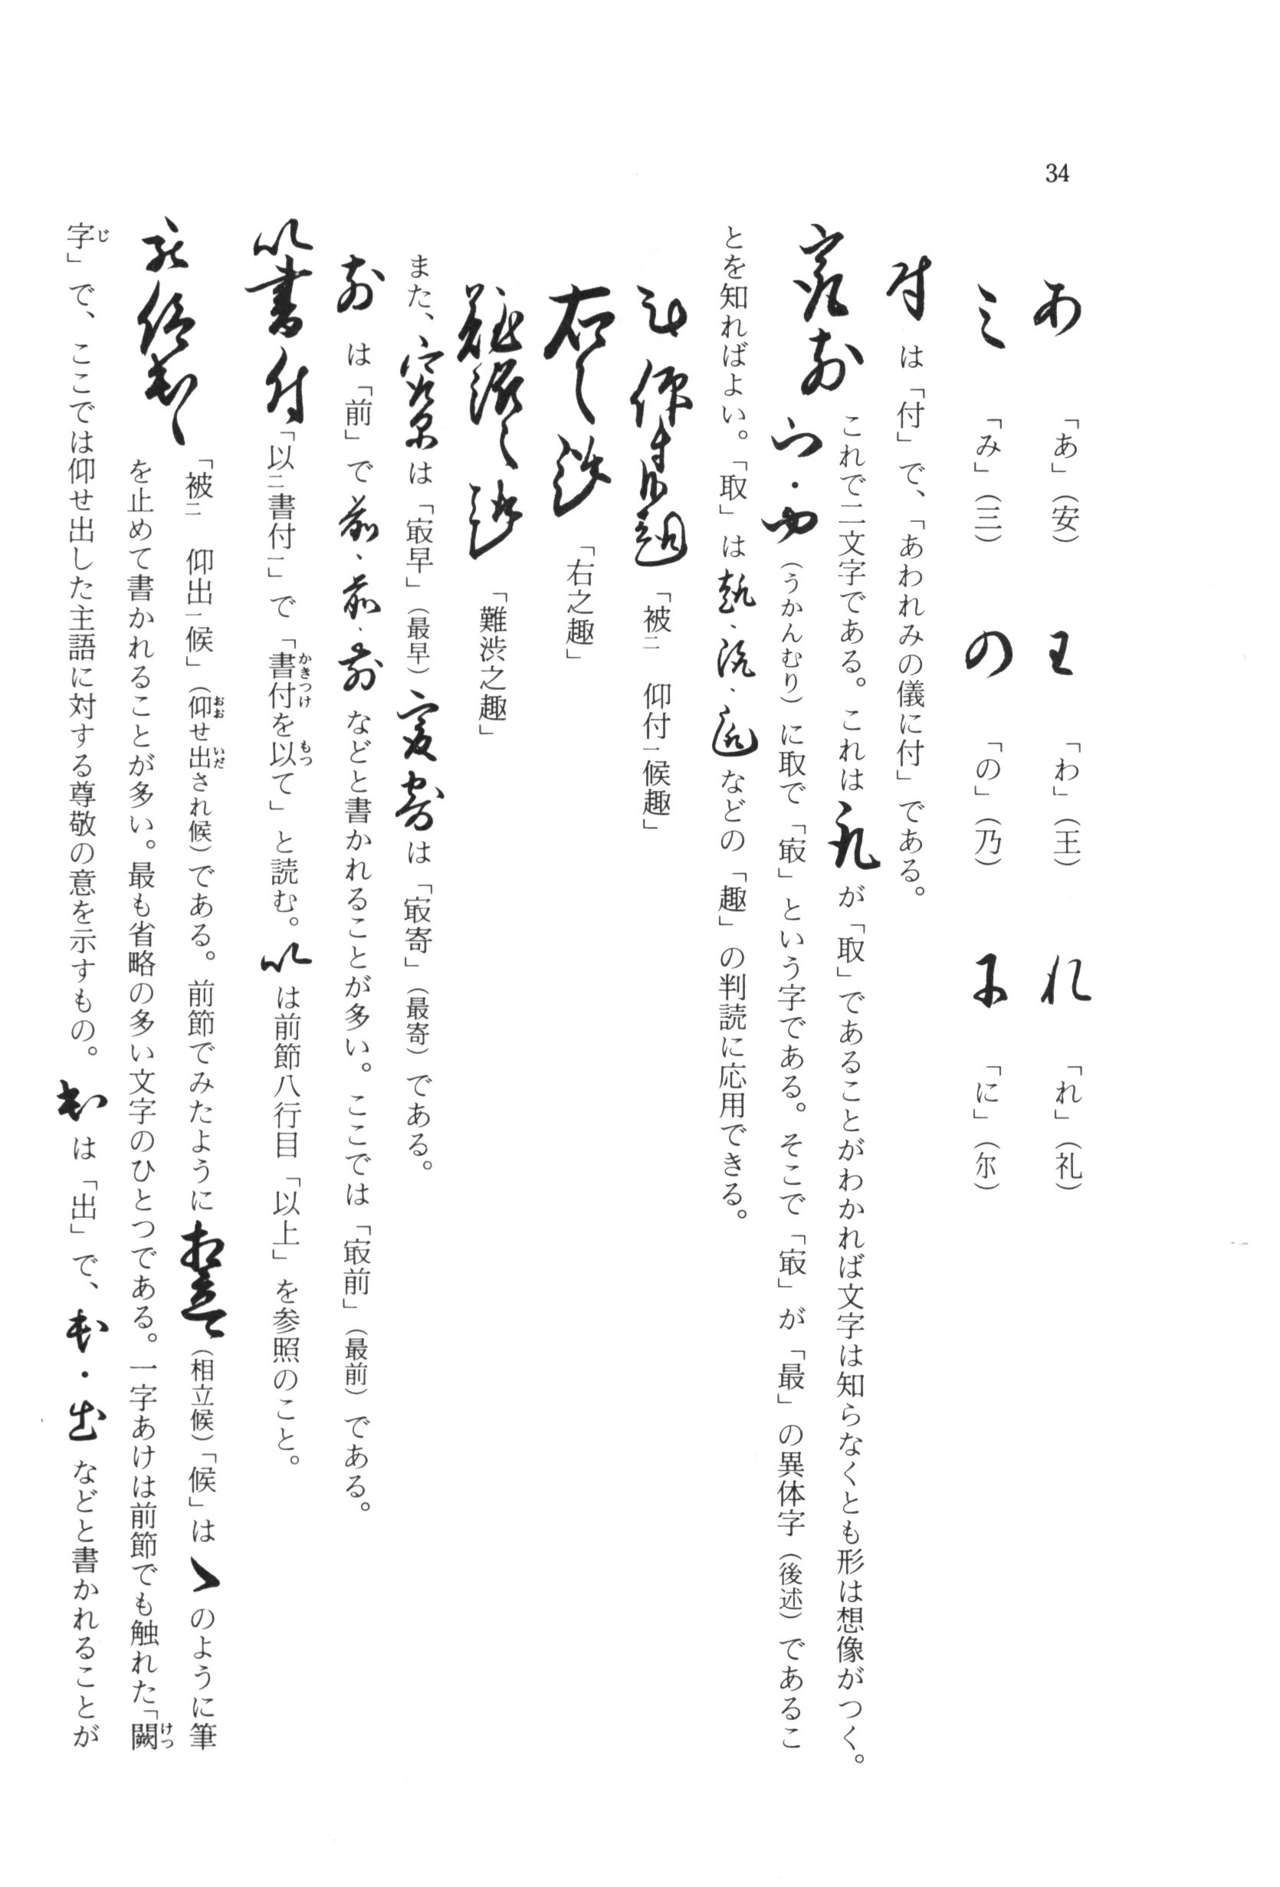 34
「あ」（安）　「わ」（王）　「れ」（礼）
「み」（三）　「の」（乃）　「に」（尓）
は「付」で、「あわれみの儀に付」である。
これで二文字である。これは　が「取」であることがわかれば文字は知らなくとも形は想像がつく。
・　（うかんむり）に取で「㝡」という字である。そこで「㝡」が「最」の異体字（後述）であるこ
とを知ればよい。「取」は　・　・　などの「趣」の判読に応用できる。
「被㆓　仰付㆒候趣」
「右之趣」
「難渋之趣」
また、　は「㝡早」（最早）　は「㝡寄」（最寄）である。
は「前」で　・　・　などと書かれることが多い。ここでは「㝡前」（最前）である。
「以㆓書付㆒」で「書付かきつけを以もって」と読む。　は前節八行目「以上」を参照のこと。
「被㆓　仰出㆒候」（仰おおせ出いだされ候）である。前節でみたように　（相立候）「候」は　のように筆
を止めて書かれることが多い。最も省略の多い文字のひとつである。一字あけは前節でも触れた「闕けつ
字じ」で、ここでは仰せ出した主語に対する尊敬の意を示すもの。　は「出」で、　・　などと書かれることが